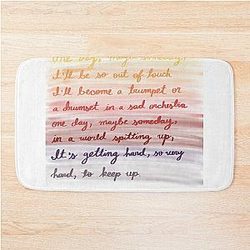 one day, maybe someday,
I'll be so out of touch
I'll become a trumpet or
a drumset in a sad orchestra
one day, maybe someday,
in a world spitting up,
It's getting hard, so very
hard, to keep up.